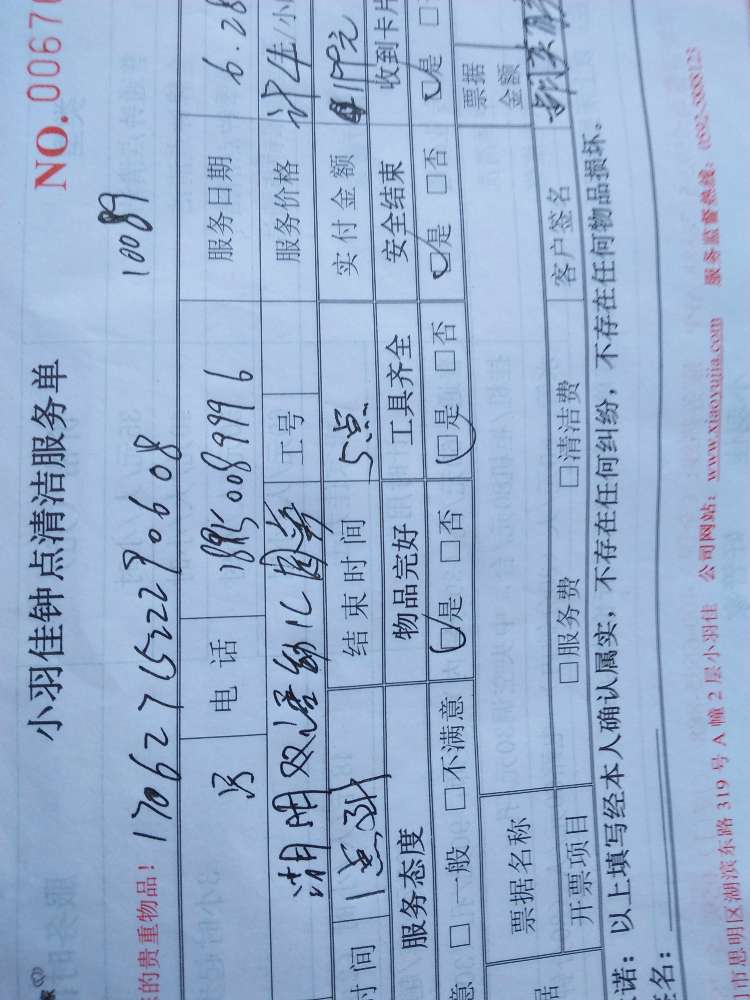 小羽佳钟点清洁服务单
NO. 00676
的贵重物品！ 1706271522290608 10089
电话 服务日期 6.28
湖明双语幼儿园旁 工号 服务价格
时间 结束时间 5点 实付金额
服务态度 物品完好 工具齐全 安全结束 收到卡片
意 □一般 □不满意 □是 □否 □是 □否 □是 □否 □是
票据名称 票据金额
开票项目 □服务费 □清洁费 客户签名
诺：以上填写经本人确认属实，不存在任何纠纷，不存在任何物品损坏。
名：
市思明区湖滨东路 319 号 A 幢 2 层小羽佳 公司网站：www.xiaoyujia.com 服务监督热线：0592-3888123